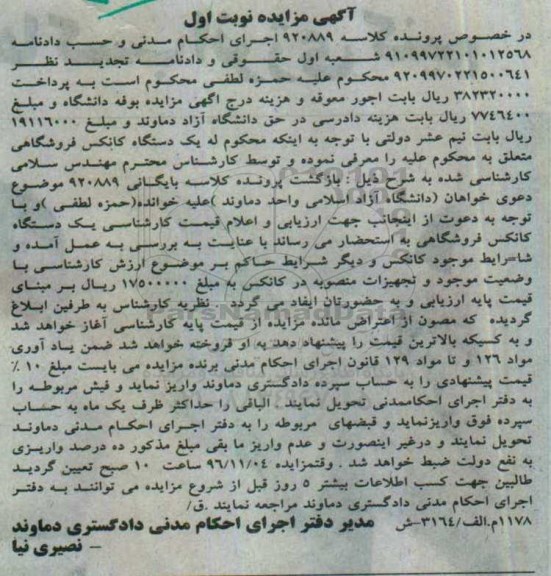 آگهی مزایده نوبت اول
در خصوص پرونده کلاسه ۹۲۰۸۸۹ اجرای احکام مدنی و حسب دادنامه
۹۱۰۹۹۷۲۲۱۰۱۰۱۲۵۶۸ شعبه اول حقوقی و دادنامه تجدید نظر
۹۲۰۹۹۷۰۲۲۱۵۰۰۶۴۱ محکوم علیه حمزه لطفی محکوم است به پرداخت
۳۸۲۳۲۰۰۰۰ ریال بابت اجور معوقه و هزینه درج اگهی مزایده بوفه دانشگاه و مبلغ
۷۷۴۶۴۰۰ ریال بابت هزینه دادرسی در حق دانشگاه آزاد دماوند و مبلغ ۱۹۱۱۶۰۰۰
ریال بابت نیم عشر دولتی با توجه به اینکه محکوم له یک دستگاه کانکس فروشگاهی
متعلق به محکوم علیه را معرفی نموده و توسط کارشناس محترم مهندس سلامی
کارشناسی شده به شرح ذیل : بازگشت پرونده کلاسه بایگانی ۹۲۰۸۸۹ موضوع
دعوی خواهان (دانشگاه آزاد اسلامی واحد دماوند )علیه خوانده(حمزه لطفی )و با
توجه به دعوت از اینجانب جهت ارزیابی و اعلام قیمت کارشناسی یک دستگاه
کانکس فروشگاهی به استحضار می رساند با عنایت به بررسی به عمل آمده و
شاسرایط موجود کانکس و دیگر شرایط حاکم بر موضوع ارزش کارشناسی با
وضعیت موجود و تجهیزات منصوبه در کانکس به مبلغ ۱۷۵۰۰۰۰۰۰ ریال بر مبنای
قیمت پایه ارزیابی و به حضورتان ایفاد می گردد . نظریه کارشناس به طرفین ابلاغ
گردیده که مصون از اعتراض مانده مزایده از قیمت پایه کارشناسی آغاز خواهد شد
و به کسیکه بالاترین قیمت را پیشنهاد دهد به او فروخته خواهد شد ضمن یاد آوری
مواد ۱۲۶ و تا مواد ۱۲۹ قانون اجرای احکام مدنی برنده مزایده می بایست مبلغ ۱۰ ٪
قیمت پیشنهادی را به حساب سپرده دادگستری دماوند واریز نماید و فیش مربوطه را
به دفتر اجرای احکاممدنی تحویل نمایند . الباقی را حداکثر ظرف یک ماه به حساب
سپرده فوق واریزنماید و قبضهای مربوطه را به دفتر اجرای احکام مدنی دماوند
تحویل نمایند و درغیر اینصورت و عدم واریز ما بقی مبلغ مذکور ده درصد واریزی
به نفع دولت ضبط خواهد شد . وقتمزایده ۹۶/۱۱/۰۴ ساعت ۱۰ صبح تعیین گردید
طالبین جهت کسب اطلاعات بیشتر ۵ روز قبل از شروع مزایده می توانند به دفتر
اجرای احکام مدنی دادگستری دماوند مراجعه نمایند .ق/
۱۱۷۸م.الف/۳۱۶۴-ش مدیر دفتر اجرای احکام مدنی دادگستری دماوند
– نصیری نیا
ParsNamadData